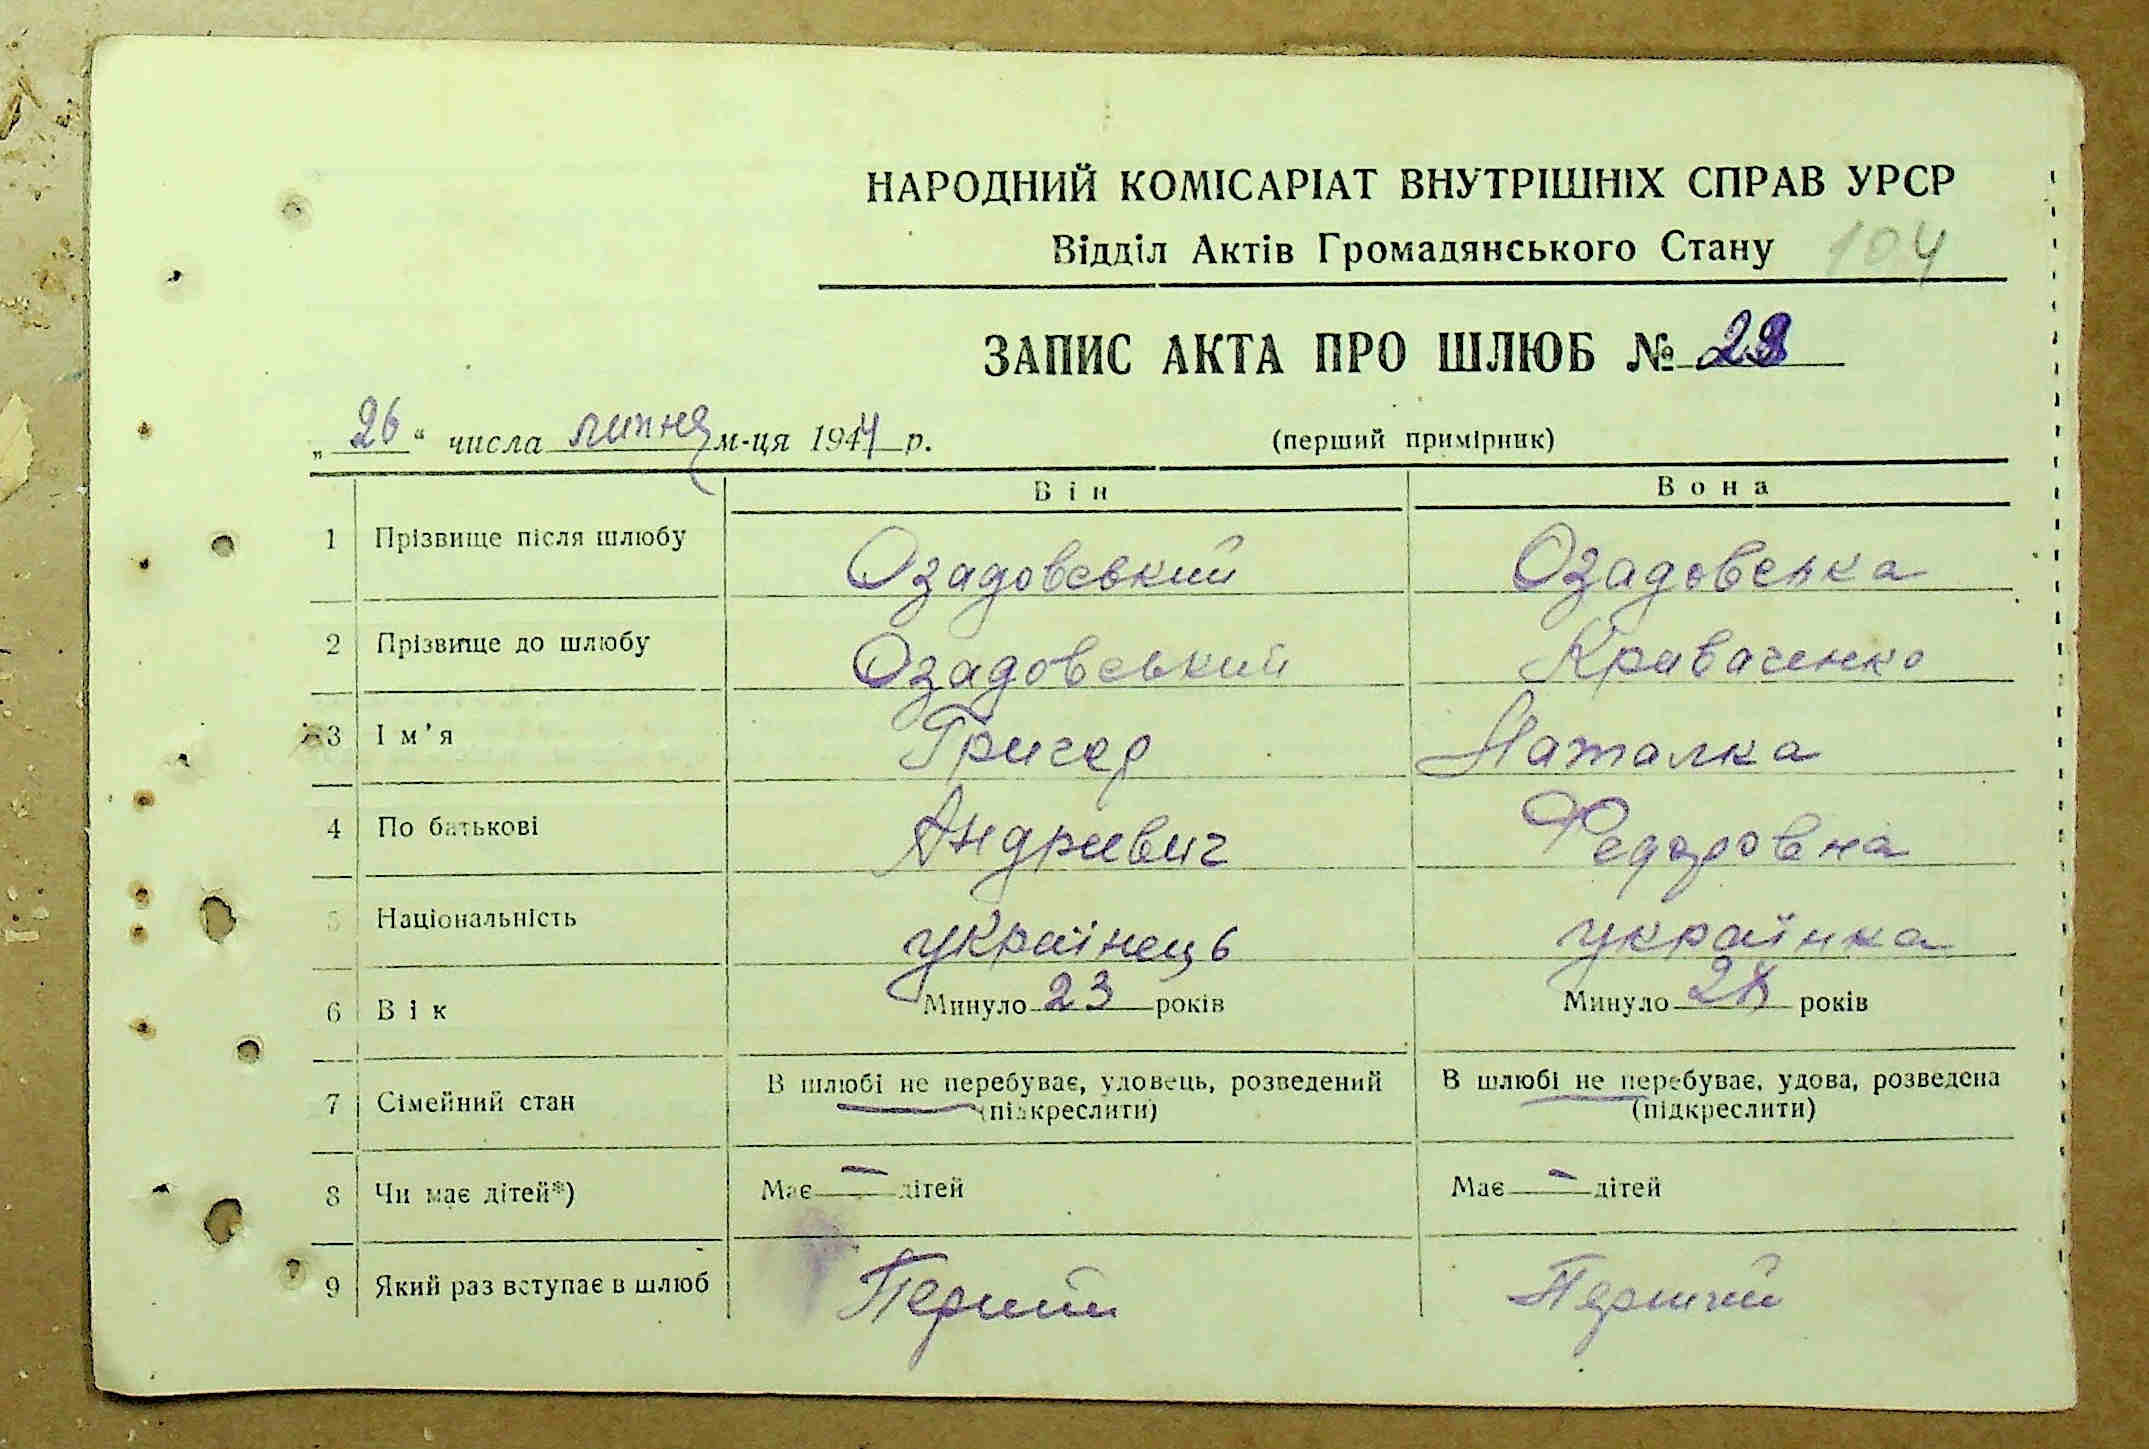 НАРОДНИЙ КОМІСАРІАТ ВНУТРІШНІХ СПРАВ УРСР
Відділ Актів Громадянського Стану 104
ЗАПИС АКТА ПРО ШЛЮБ №
„26“ числа липня м-ця 1944 р. (перший примірник)
Він Вона
1 Прізвище після шлюбу Озадовський Озадовська
2 Прізвище до шлюбу Озадовський Краваченко
3 Ім’я Григор Наталка
4 По батькові Андриевич Федоровна
5 Національність українець українка
6 Вік Минуло 23 років Минуло років
7 Сімейний стан В шлюбі не перебуває, удовець, розведений (підкреслити) В шлюбі не перебуває, удова, розведена (підкреслити)
8 Чи має дітей*) Має — дітей Має — дітей
9 Який раз вступає в шлюб Перший Перший